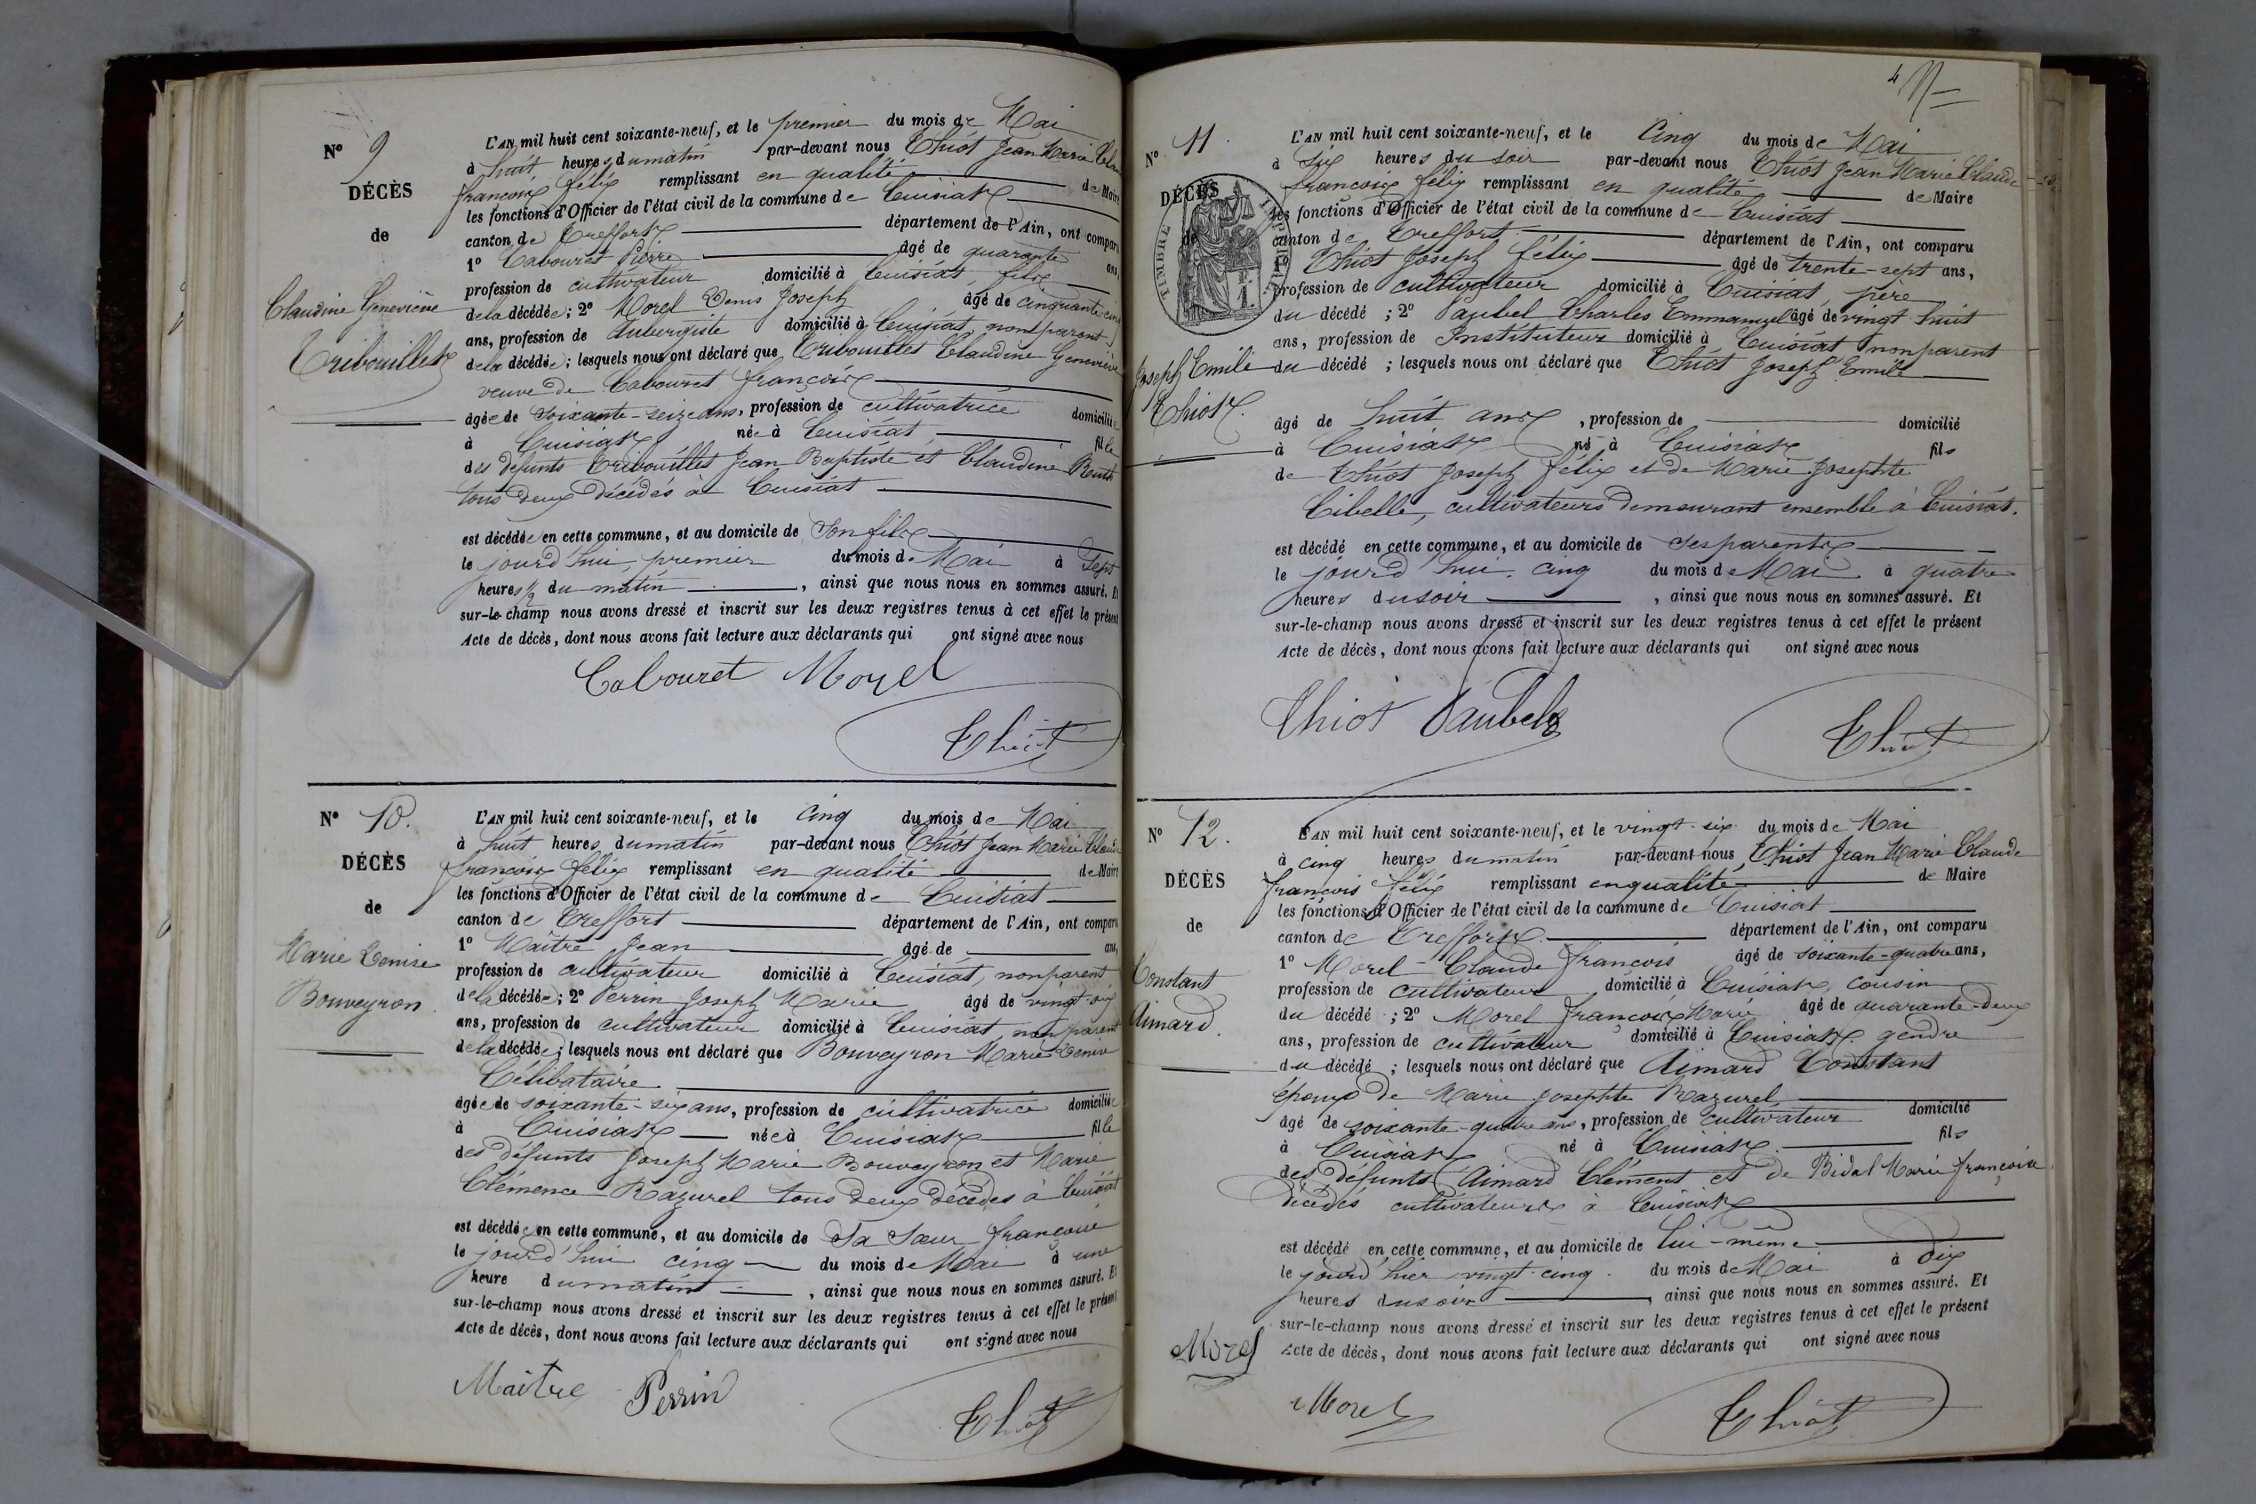 N° 9
DÉCÈS
de
Claudine Geneviève
Tribouillet
L'AN mil huit cent soixante-neuf, et le premier du mois de Mai
à huit heures du matin par-devant nous Thiot Jean Marie
françois félix remplissant en qualité de Maire
les fonctions d'Officier de l'état civil de la commune de Cuisiat
canton de Treffort département de l'Ain, ont comparu
1° Cabouret Pierre âgé de quarante ans,
profession de cultivateur domicilié à Cuisiat fils
de la décédée; 2° Morel Denis Joseph âgé de cinquante
ans, profession de Aubergiste domicilié à Cuisiat, non parent
de la décédée; lesquels nous ont déclaré que Tribouillet Claudine Geneviève
veuve de Cabouret françois
âgée de soixante-seize ans, profession de cultivatrice domiciliée
à Cuisiat née à Cuisiat fille
des défunts Tribouillet Jean Baptiste et Claudine
tous deux décédés à Cuisiat
est décédée en cette commune, et au domicile de Son fils
le jourd'hui premier du mois de Mai à Sept
heures 1/2 du matin, ainsi que nous nous en sommes assuré. Et
sur-le-champ nous avons dressé et inscrit sur les deux registres tenus à cet effet le présent
Acte de décès, dont nous avons fait lecture aux déclarants qui ont signé avec nous
Cabouret Morel
Thiot
N° 10.
DÉCÈS
de
Marie Denise
Bouveyron
L'AN mil huit cent soixante-neuf, et le cinq du mois de Mai
à huit heures du matin par-devant nous Thiot Jean Marie Claude
françois félix remplissant en qualité de Maire
les fonctions d'Officier de l'état civil de la commune de Cuisiat
canton de Treffort département de l'Ain, ont comparu
1° Maître Jean âgé de ans,
profession de cultivateur domicilié à Cuisiat, non parent
de la décédée; 2° Perrin Joseph Marie âgé de vingt-six
ans, profession de cultivateur domicilié à Cuisiat non parent
de la décédée; lesquels nous ont déclaré que Bouveyron Marie Denise
Célibataire
âgée de soixante-six ans, profession de cultivatrice domiciliée
à Cuisiat née à Cuisiat fille
des défunts Joseph Marie Bouveyron et Marie
Clémence Razurel tous deux décédés à Cuisiat
est décédée en cette commune, et au domicile de Sa Sœur françoise
le jourd'hui cinq du mois de Mai à une
heure du matin, ainsi que nous nous en sommes assuré. Et
sur-le-champ nous avons dressé et inscrit sur les deux registres tenus à cet effet le présent
Acte de décès, dont nous avons fait lecture aux déclarants qui ont signé avec nous
Maître Perrin
Thiot
4
N° 11.
DÉCÈS
de
TIMBRE IMPERIAL
Joseph Emile
Thiot.
L'AN mil huit cent soixante-neuf, et le Cinq du mois de Mai
à Six heures du soir par-devant nous Thiot Jean Marie Claude
françois félix remplissant en qualité de Maire
les fonctions d'Officier de l'état civil de la commune de Cuisiat
canton de Treffort département de l'Ain, ont comparu
1° Thiot Joseph félix âgé de trente-sept ans,
profession de cultivateur domicilié à Cuisiat, père
du décédé; 2° Paubel Charles Emmanuel âgé de vingt huit
ans, profession de Instituteur domicilié à Cuisiat non parent
du décédé; lesquels nous ont déclaré que Thiot Joseph Emile
âgé de huit ans, profession de domicilié
à Cuisiat né à Cuisiat fils
de Thiot Joseph félix et de Marie Josephte
Cibelle, cultivateurs demeurant ensemble à Cuisiat.
est décédé en cette commune, et au domicile de Ses parents
le jourd'hui cinq du mois de Mai à quatre
heures du soir, ainsi que nous nous en sommes assuré. Et
sur-le-champ nous avons dressé et inscrit sur les deux registres tenus à cet effet le présent
Acte de décès, dont nous avons fait lecture aux déclarants qui ont signé avec nous
Thiot Paubel
Thiot
N° 12.
DÉCÈS
de
Constant
Aimard.
L'AN mil huit cent soixante-neuf, et le vingt-six du mois de Mai
à cinq heures du matin par-devant nous Thiot Jean Marie Claude
françois félix remplissant en qualité de Maire
les fonctions d'Officier de l'état civil de la commune de Cuisiat
canton de Treffort département de l'Ain, ont comparu
1° Morel Claude françois âgé de soixante-quatre ans,
profession de cultivateur domicilié à Cuisiat, cousin
du décédé; 2° Morel françois Marie âgé de quarante-deux
ans, profession de cultivateur domicilié à Cuisiat gendre
du décédé; lesquels nous ont déclaré que Aimard Constant
époux de Marie Josephte Razurel
âgé de soixante-quatre ans, profession de cultivateur domicilié
à Cuisiat né à Cuisiat fils
des défunts Aimard Clément et de Bidal Marie françoise
décédés cultivateurs à Cuisiat
est décédé en cette commune, et au domicile de lui-même
le jourd'hier vingt-cinq du mois de Mai à dix
heures du soir, ainsi que nous nous en sommes assuré. Et
sur-le-champ nous avons dressé et inscrit sur les deux registres tenus à cet effet le présent
Acte de décès, dont nous avons fait lecture aux déclarants qui ont signé avec nous
Morel
Morel
Thiot